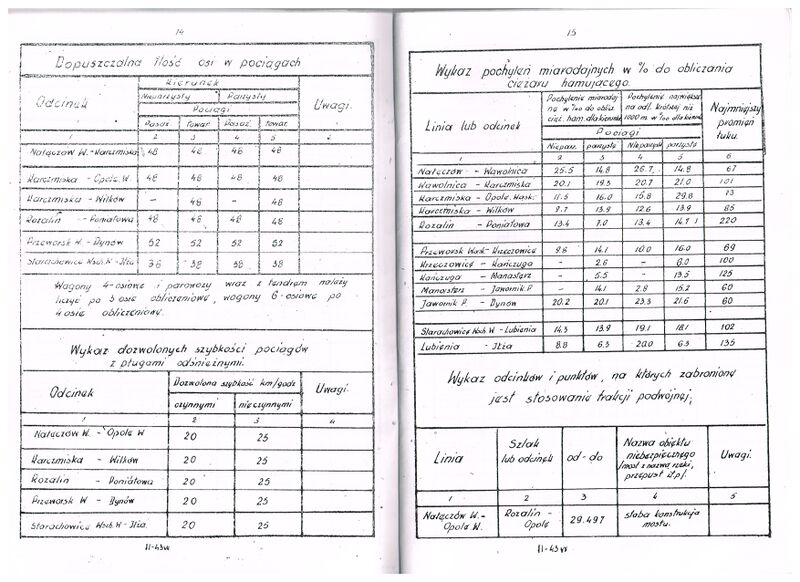 14
Dopuszczalna ilość osi w pociągach
Odcinek
Kierunek
Uwagi.
Nieparzysty Parzysty
Pociągi
Posaż. Towar. Posaż. Towar.
1 2 3 4 5
Nałęczów W.-Karczmiska 48 48 48 48
Karczmiska - Opole W. 48 48 48 48
Karczmiska - Wilków - 48 - 48
Rozalin - Poniatowa 48 48 48 48
Przeworsk W - Dynów 52 52 52 52
Starachowice Wsch. W - Iłża 38 38 38
Wagony 4-osiowe i parowozy wraz z tendrem należy
liczyć po 3 osie obliczeniowe, wagony 6-osiowe po
4 osie obliczeniowe.
Wykaz dozwolonych szybkości pociągów
z pługami odśnieżnymi.
Odcinek
Dozwolona szybkość km/godz
Uwagi.
czynnymi nieczynnymi
1 2 3 4
Nałęczów W. - Opole W 20 25
Karczmiska - Wilków 20 25
Rozalin - Poniatowa 20 25
Przeworsk W - Dynów 20 25
Starachowice Wsch. W - Iłża. 20 25
11-43w
15
Wykaz pochyleń miarodajnych w ‰ do obliczania
ciężaru hamującego.
Linia lub odcinek
Pochylenie miarodaj
ne w ‰ do oblicz.
cięż. ham. dla kierunk.
Pochylenie największe
na odl. krótszej niż
1000 m. w ‰ dla kierunk.
Najmniejszy
promień
łuku.
Pociągi
Nieparz. parzyste Nieparzyste parzyste
1 2 3 4 5 6
Nałęczów - Wąwolnica 25.5 14.8 26.7 14.8 67
Wąwolnica - Karczmiska 20.1 19.3 20.7 21.0 101
Karczmiska - Opole Wąsk. 11.5 16.0 15.8 29.8 73
Karczmiska - Wilków 9.7 13.9 12.6 13.9 85
Rozalin - Poniatowa 13.4 7.0 13.4 220
Przeworsk Wąsk - Krzeczowice 9.8 14.1 10.0 16.0 69
Krzeczowice - Kańczuga - 2.6 - 6.0 100
Kańczuga - Manasterz - 5.5 - 13.5 125
Manasterz - Jawornik P. - 14.1 2.8 15.2 60
Jawornik P. - Dynów 20.2 20.1 23.3 21.6 60
Starachowice Wsch. W - Lubienia 14.3 13.9 19.1 18.1 102
Lubienia - Iłża 8.8 6.3 20.0 6.3 135
Wykaz odcinków i punktów, na których zabronione
jest stosowanie trakcji podwójnej;
Linia
Szlak
lub odcinek
od - do
Nazwa obiektu
niebezpiecznego
/most z nazwą rzeki,
przepust itp/.
Uwagi.
1 2 3 4 5
Nałęczów W.-
Opole W.
Rozalin -
Opole
29.497
słaba konstrukcja
mostu.
11-43w